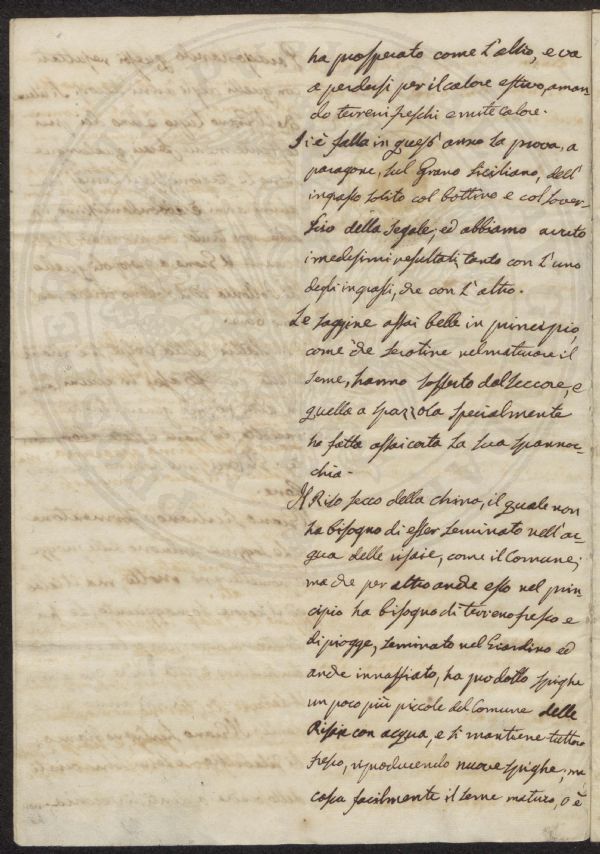 ha prosperato come l'altro, e va
a perdersi per il calore estivo, aman
do terreni freschi e mite calore.
Si è fatta in quest'anno la prova, a
paragone, sul Grano Siciliano, dell'
ingrasso solito col bottino e col sover-
scio della Segale, ed abbiamo avuto
i medesimi resultati, tanto con l'uno
degli ingrassi, che con l'altro.
Le saggine assai belle in principio,
come che serotine nel maturare il
seme, hanno sofferto dal seccore, e
quella a spazzola specialmente
ha fatta assai corta la sua spannoc-
chia.
Il Riso secco della china, il quale non
ha bisogno di esser seminato nell'ac-
qua delle risaie, come il Comune;
ma che per altro anche esso nel prin-
cipio ha bisogno di terreno fresco e
di piogge, seminato nel Giardino ed
anche innaffiato, ha prodotto spighe
un poco più piccole del Comune delle
Risaie con acqua, e si mantiene tuttora
fresco, riproducendo nuove spighe; ma
casca facilmente il seme maturo, o è